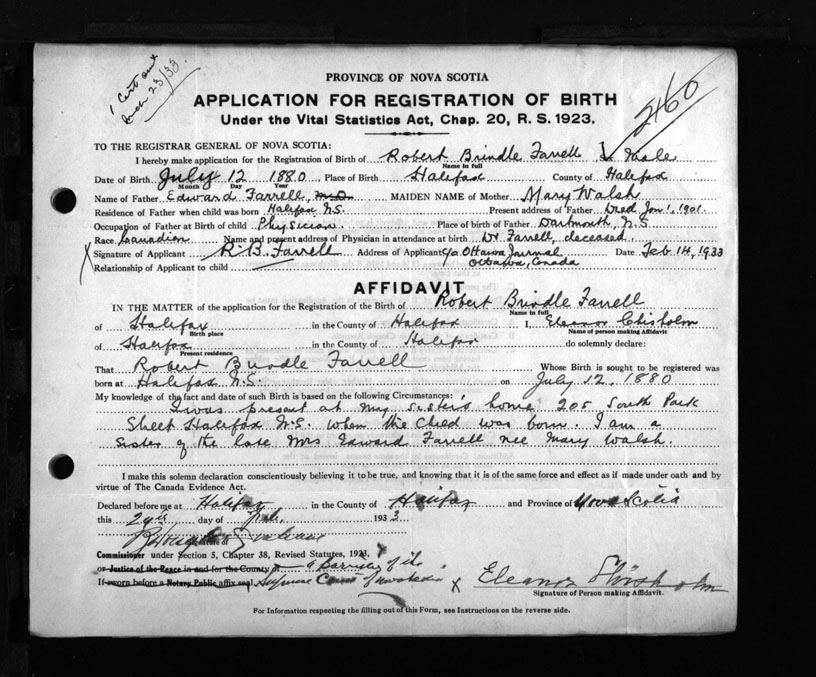 1 Cert sent
Mch 23/33
2460
PROVINCE OF NOVA SCOTIA
APPLICATION FOR REGISTRATION OF BIRTH
Under the Vital Statistics Act, Chap. 20, R. S. 1923.
TO THE REGISTRAR GENERAL OF NOVA SCOTIA:
I hereby make application for the Registration of Birth of Robert Brindle Farrell Male
Name in full
Date of Birth July 12 1880 Place of Birth Halifax County of Halifax
Month Day Year
Name of Father Edward Farrell, M.D. MAIDEN NAME of Mother Mary Walsh
Residence of Father when child was born Halifax N.S. Present address of Father Died Jan 1. 1901.
Occupation of Father at Birth of child Physician Place of birth of Father Dartmouth, N.S
Race Canadian Name and present address of Physician in attendance at birth Dr Farrell, deceased.
Signature of Applicant R B. Farrell Address of Applicant c/o Ottawa Journal Date Feb 14, 1933
Ottawa, Canada
Relationship of Applicant to child
AFFIDAVIT
IN THE MATTER of the application for the Registration of the Birth of Robert Brindle Farrell
Name in full
of Halifax in the County of Halifax I, Eleanor Chisholm
Birth place Name of person making Affidavit
of Halifax in the County of Halifax do solemnly declare:
Present residence
That Robert Brindle Farrell Whose Birth is sought to be registered was
born at Halifax N.S. on July 12, 1880
My knowledge of the fact and date of such Birth is based on the following Circumstances:
I was present at my sister's home 205 South Park
Street Halifax N.S. when the child was born. I am a
sister of the late Mrs Edward Farrell nee Mary Walsh.
I make this solemn declaration conscientiously believing it to be true, and knowing that it is of the same force and effect as if made under oath and by
virtue of The Canada Evidence Act.
Declared before me at Halifax in the County of Halifax and Province of Nova Scotia
this 24th day of Feb. 1933
Commissioner under Section 5, Chapter 38, Revised Statutes, 1923.
or Justice of the Peace in and for the County a Barrister of the
If sworn before a Notary Public affix seal Supreme Court of Nova Scotia x Eleanor Chisholm
Signature of Person making Affidavit.
For Information respecting the filling out of this Form, see Instructions on the reverse side.